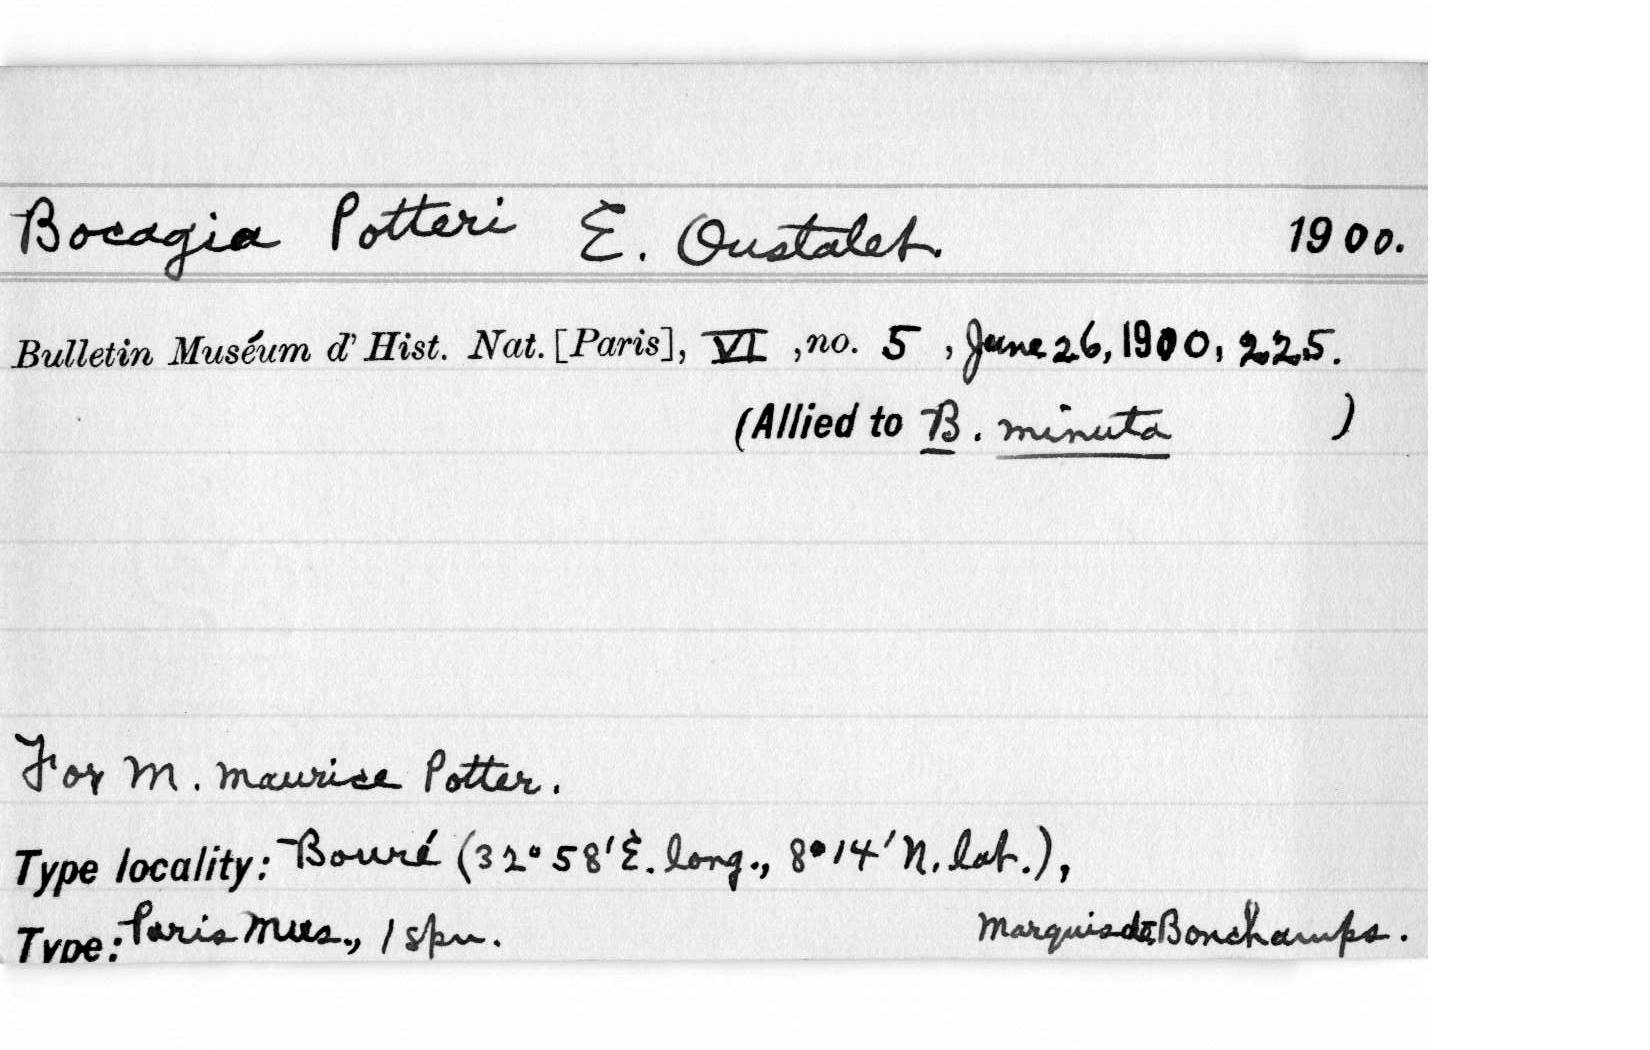 Bocagia Potteri E. Oustalet. 1900.
Bulletin Muséum d' Hist. Nat. [Paris], VI, no. 5, June 26, 1900, 225.
(Allied to B. minuta )
For M. Maurice Potter.
Type locality: Bouré (32° 58' E. long., 8° 14' N. lat.),
Type: Paris Mus., 1 spn. Marquis de Bonchamps.